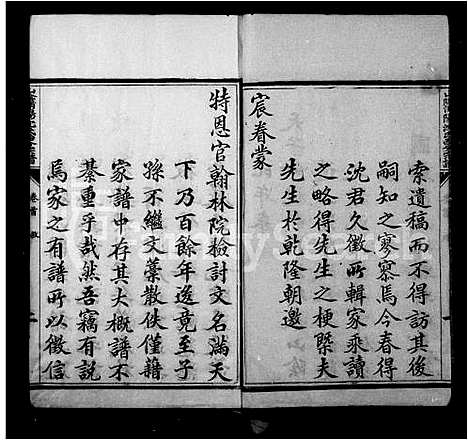 索遺稿而不得訪其後
嗣知之寥寥焉今春得
沈君久徵所輯家乘讀
之略得先生之梗槩夫
先生於乾隆朝邀
宸眷蒙
特恩官翰林院檢討文名滿天
下乃百餘年邃竟至子
孫不繼文藁散佚僅藉
家譜中存其大概譜不
綦重乎哉然吾竊有說
焉家之有譜所以徵信
卷首